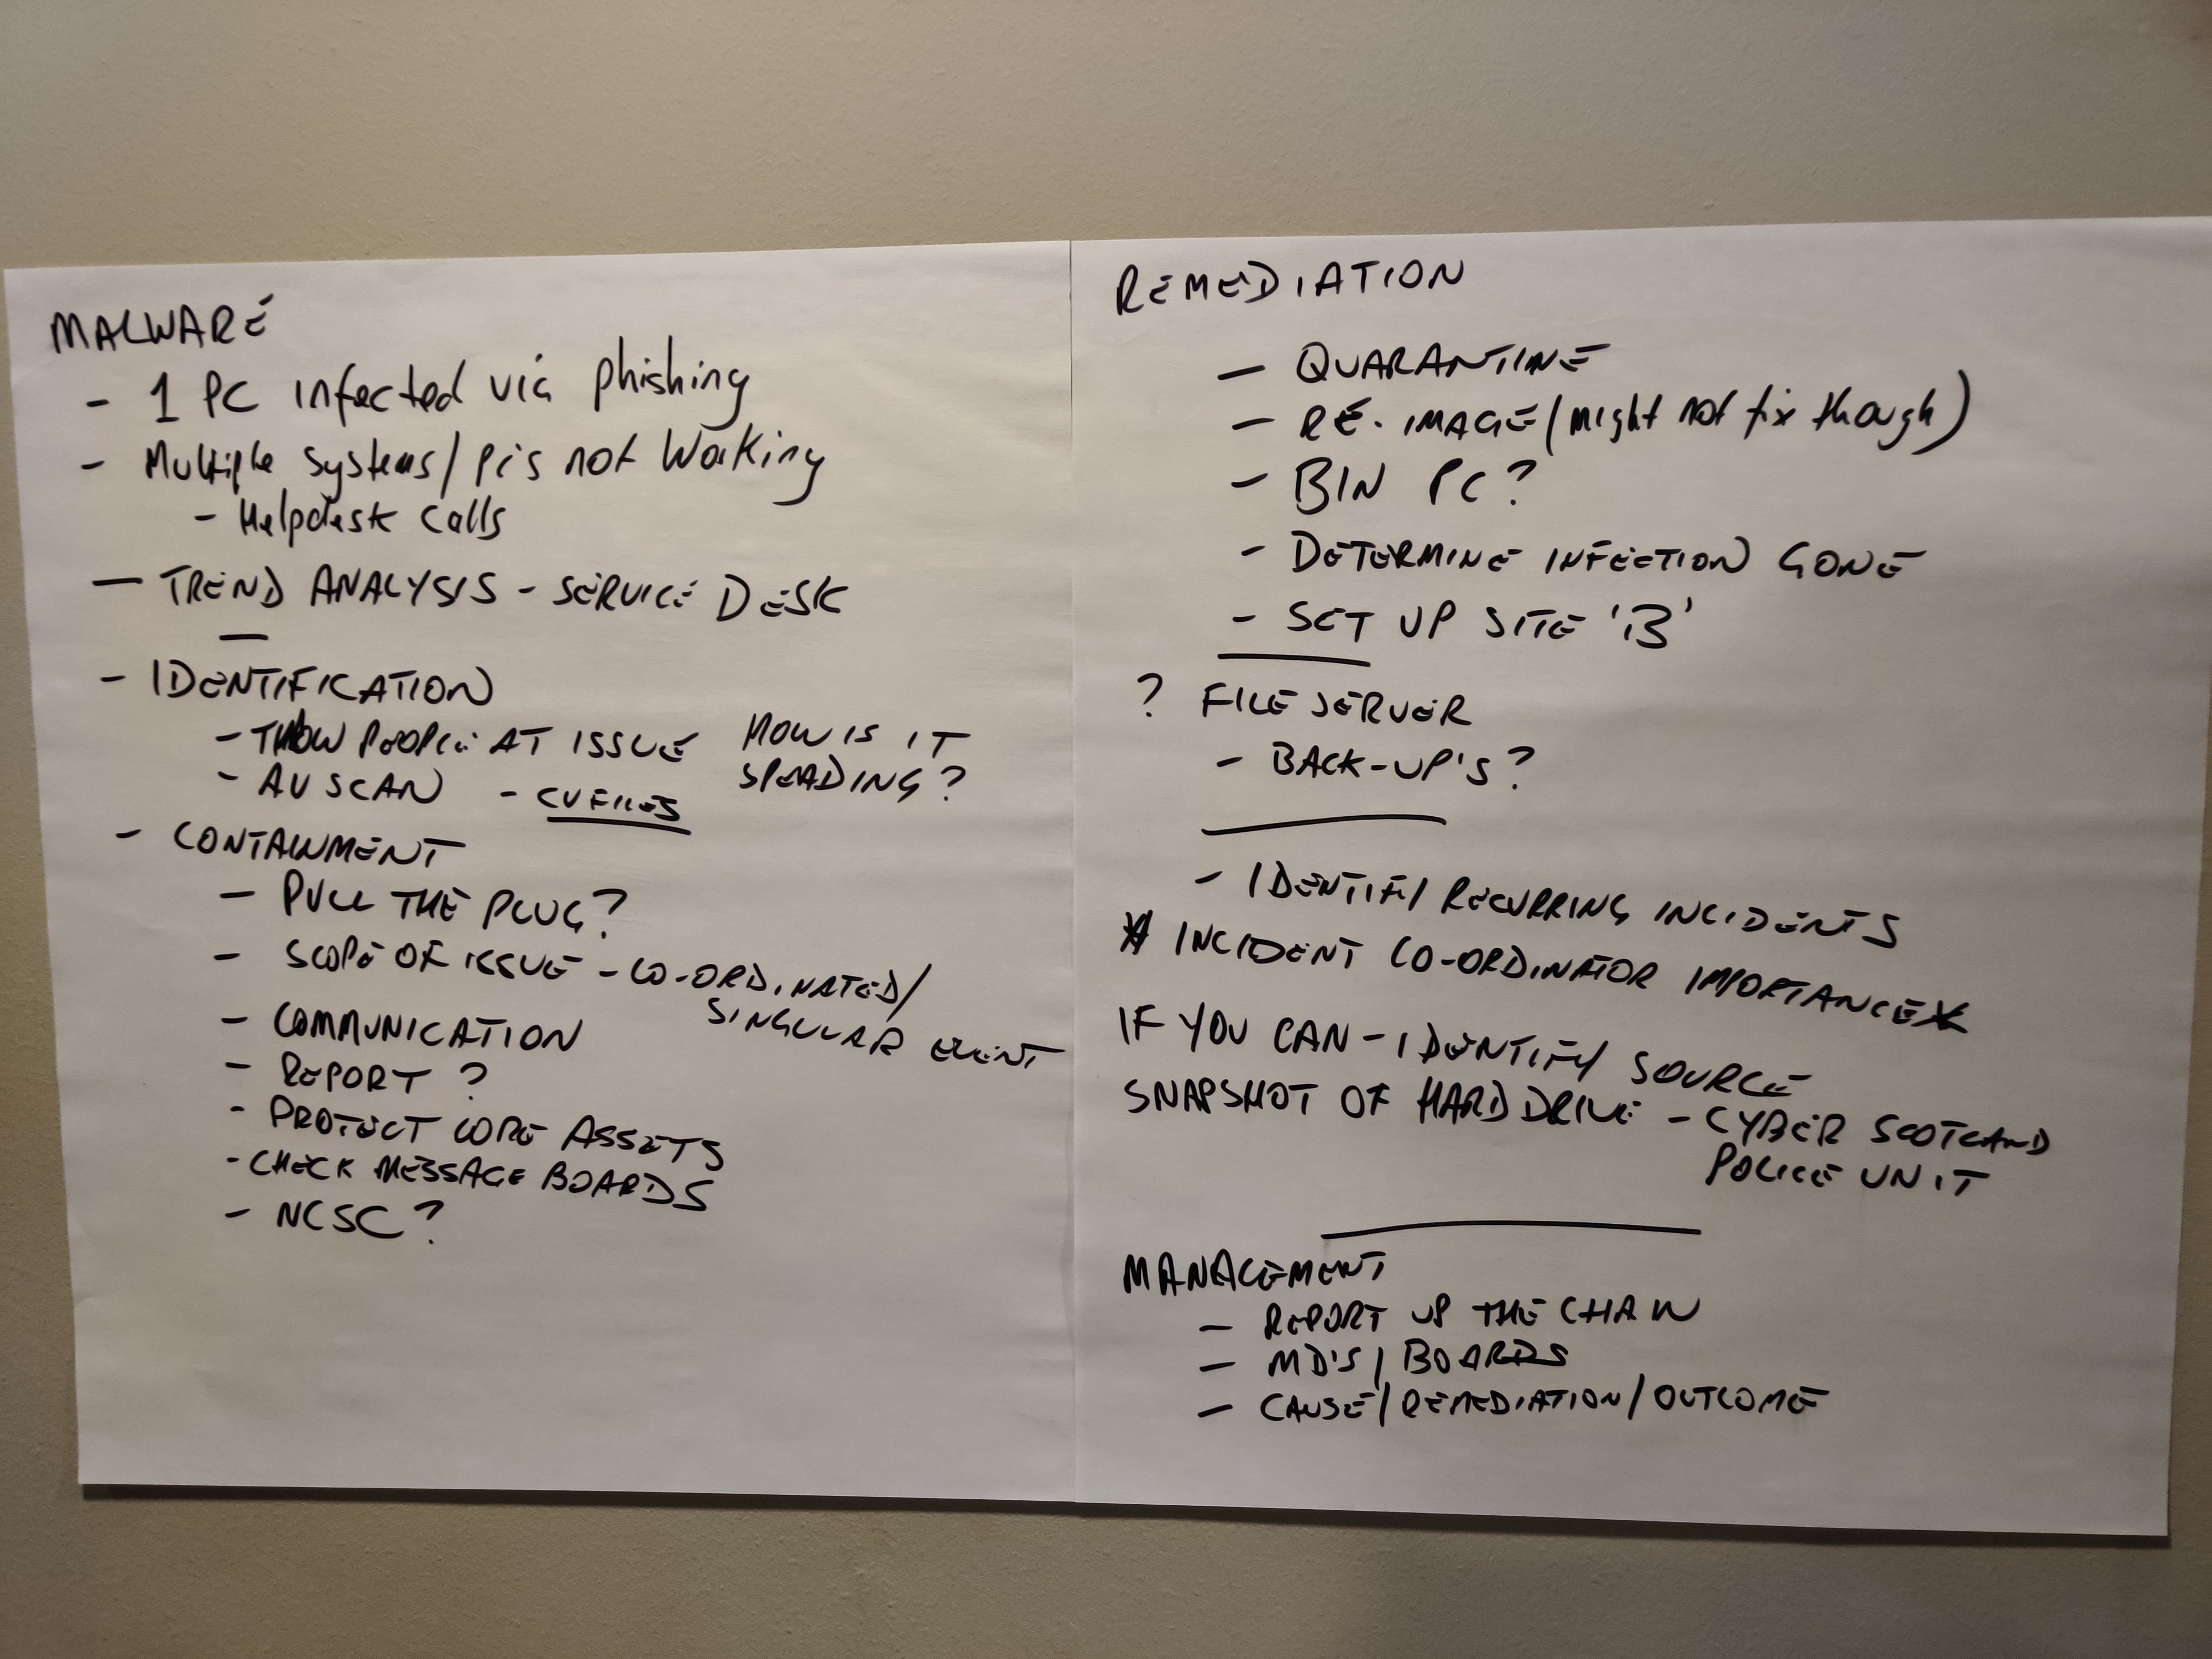 MALWARE
- 1 PC infected via phishing
- Multiple systems/PC's not working
- Helpdesk calls
- TREND ANALYSIS - SERVICE DESK
- IDENTIFICATION
- THROW PEOPLE AT ISSUE
HOW IS IT
SPEADING?
- AV SCAN - CV FILES
- CONTAINMENT
- PULL THE PLUG?
- SCOPE OF ISSUE - CO-ORDINATED/
SINGULAR EVENT
- COMMUNICATION
- REPORT?
- PROTECT CORE ASSETS
- CHECK MESSAGE BOARDS
- NCSC?
REMEDIATION
- QUARANTINE
- RE-IMAGE (might not fix though)
- BIN PC?
- DETERMINE INFECTION GONE
- SET UP SITE 'B'
? FILE SERVER
- BACK-UP'S?
- IDENTIFY RECURRING INCIDENTS
* INCIDENT CO-ORDINATOR IMPORTANCE *
IF YOU CAN - IDENTIFY SOURCE
SNAPSHOT OF HARD DRIVE - CYBER SCOTLAND
POLICE UNIT
MANAGEMENT
- REPORT UP THE CHAIN
- MD'S / BOARDS
- CAUSE/REMEDIATION/OUTCOME